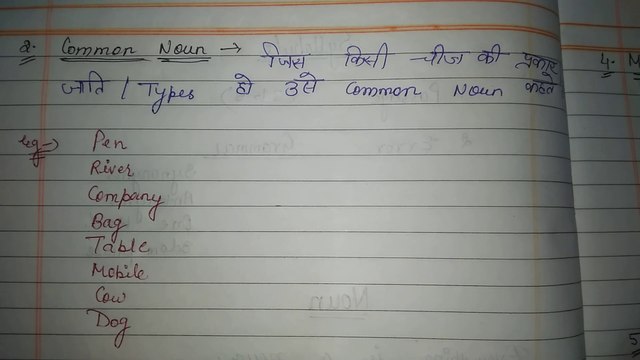 2. Common Noun → जिस किसी चीज की प्रकार
जाति / Types हो उसे Common Noun कहते
eg→ Pen
River
Company
Bag
Table
Mobile
Cow
Dog
4. M
Noun